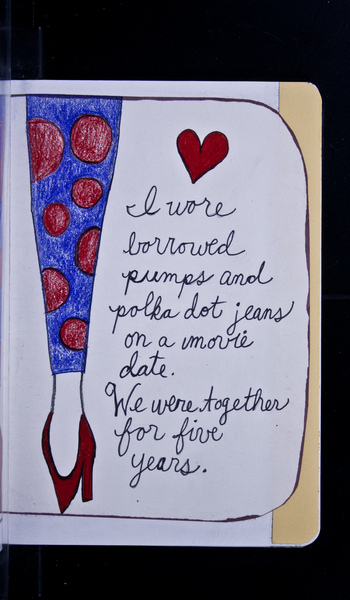 I wore
borrowed
pumps and
polka dot jeans
on a movie
date.
We were together
for five
years.